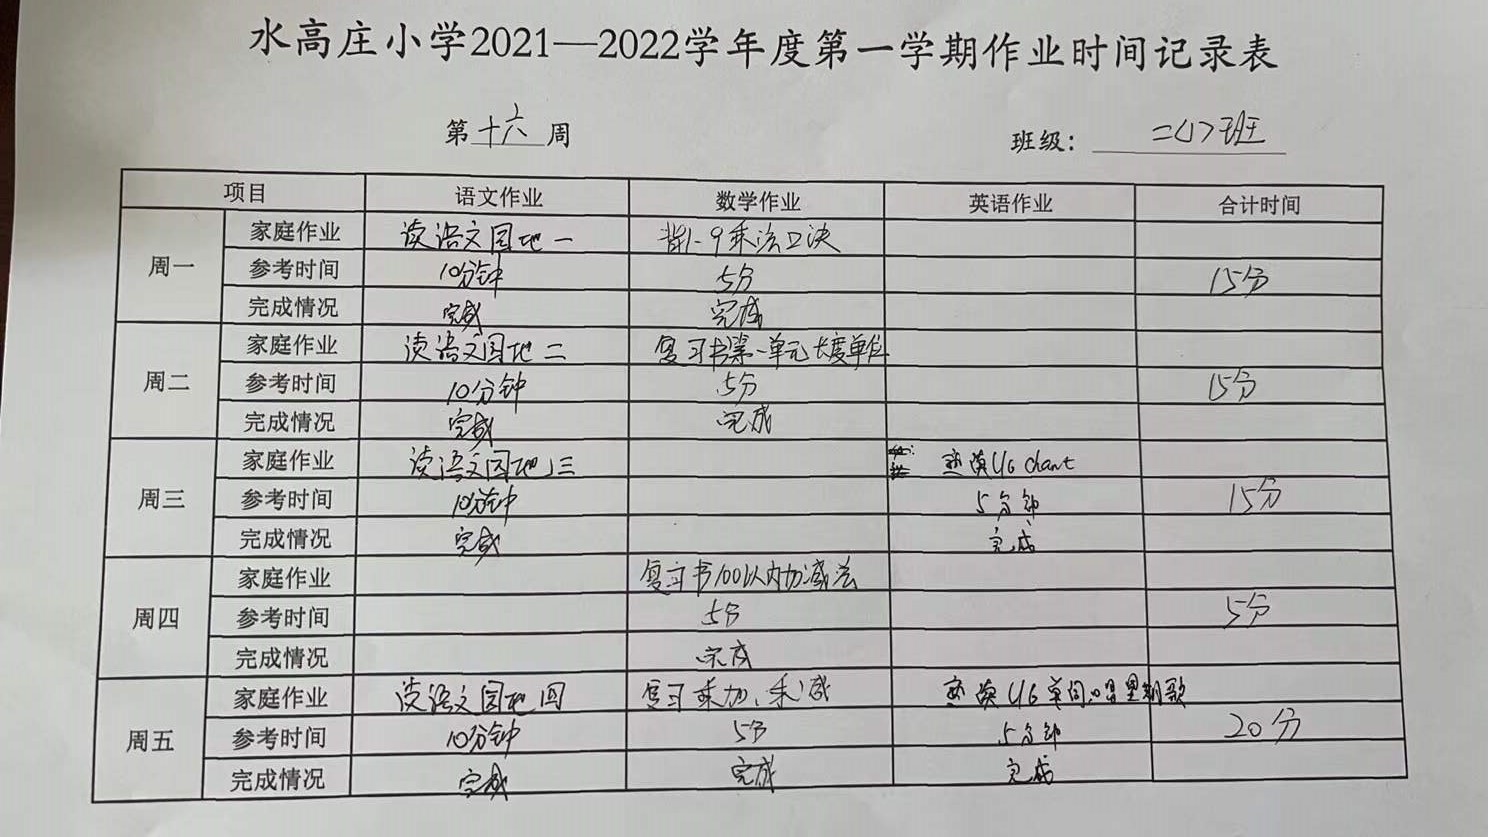 水高庄小学2021—2022学年度第一学期作业时间记录表
第十六周 班级：二(1)班
项目 语文作业 数学作业 英语作业 合计时间
周一
家庭作业 读语文园地一 背1-9乘法口决
参考时间 10分钟 5分 15分
完成情况 完成 完成
周二
家庭作业 读语文园地二 复习书第一单元长度单位
参考时间 10分钟 5分 15分
完成情况 完成 完成
周三
家庭作业 读语文园地三 熟读U6 chant
参考时间 10分钟 5分钟 15分
完成情况 完成 完成
周四
家庭作业 复习书100以内加减法
参考时间 5分 5分
完成情况 完成
周五
家庭作业 读语文园地四 复习乘加、乘减 熟读U6单词,唱星期歌
参考时间 10分钟 5分 5分钟 20分
完成情况 完成 完成 完成